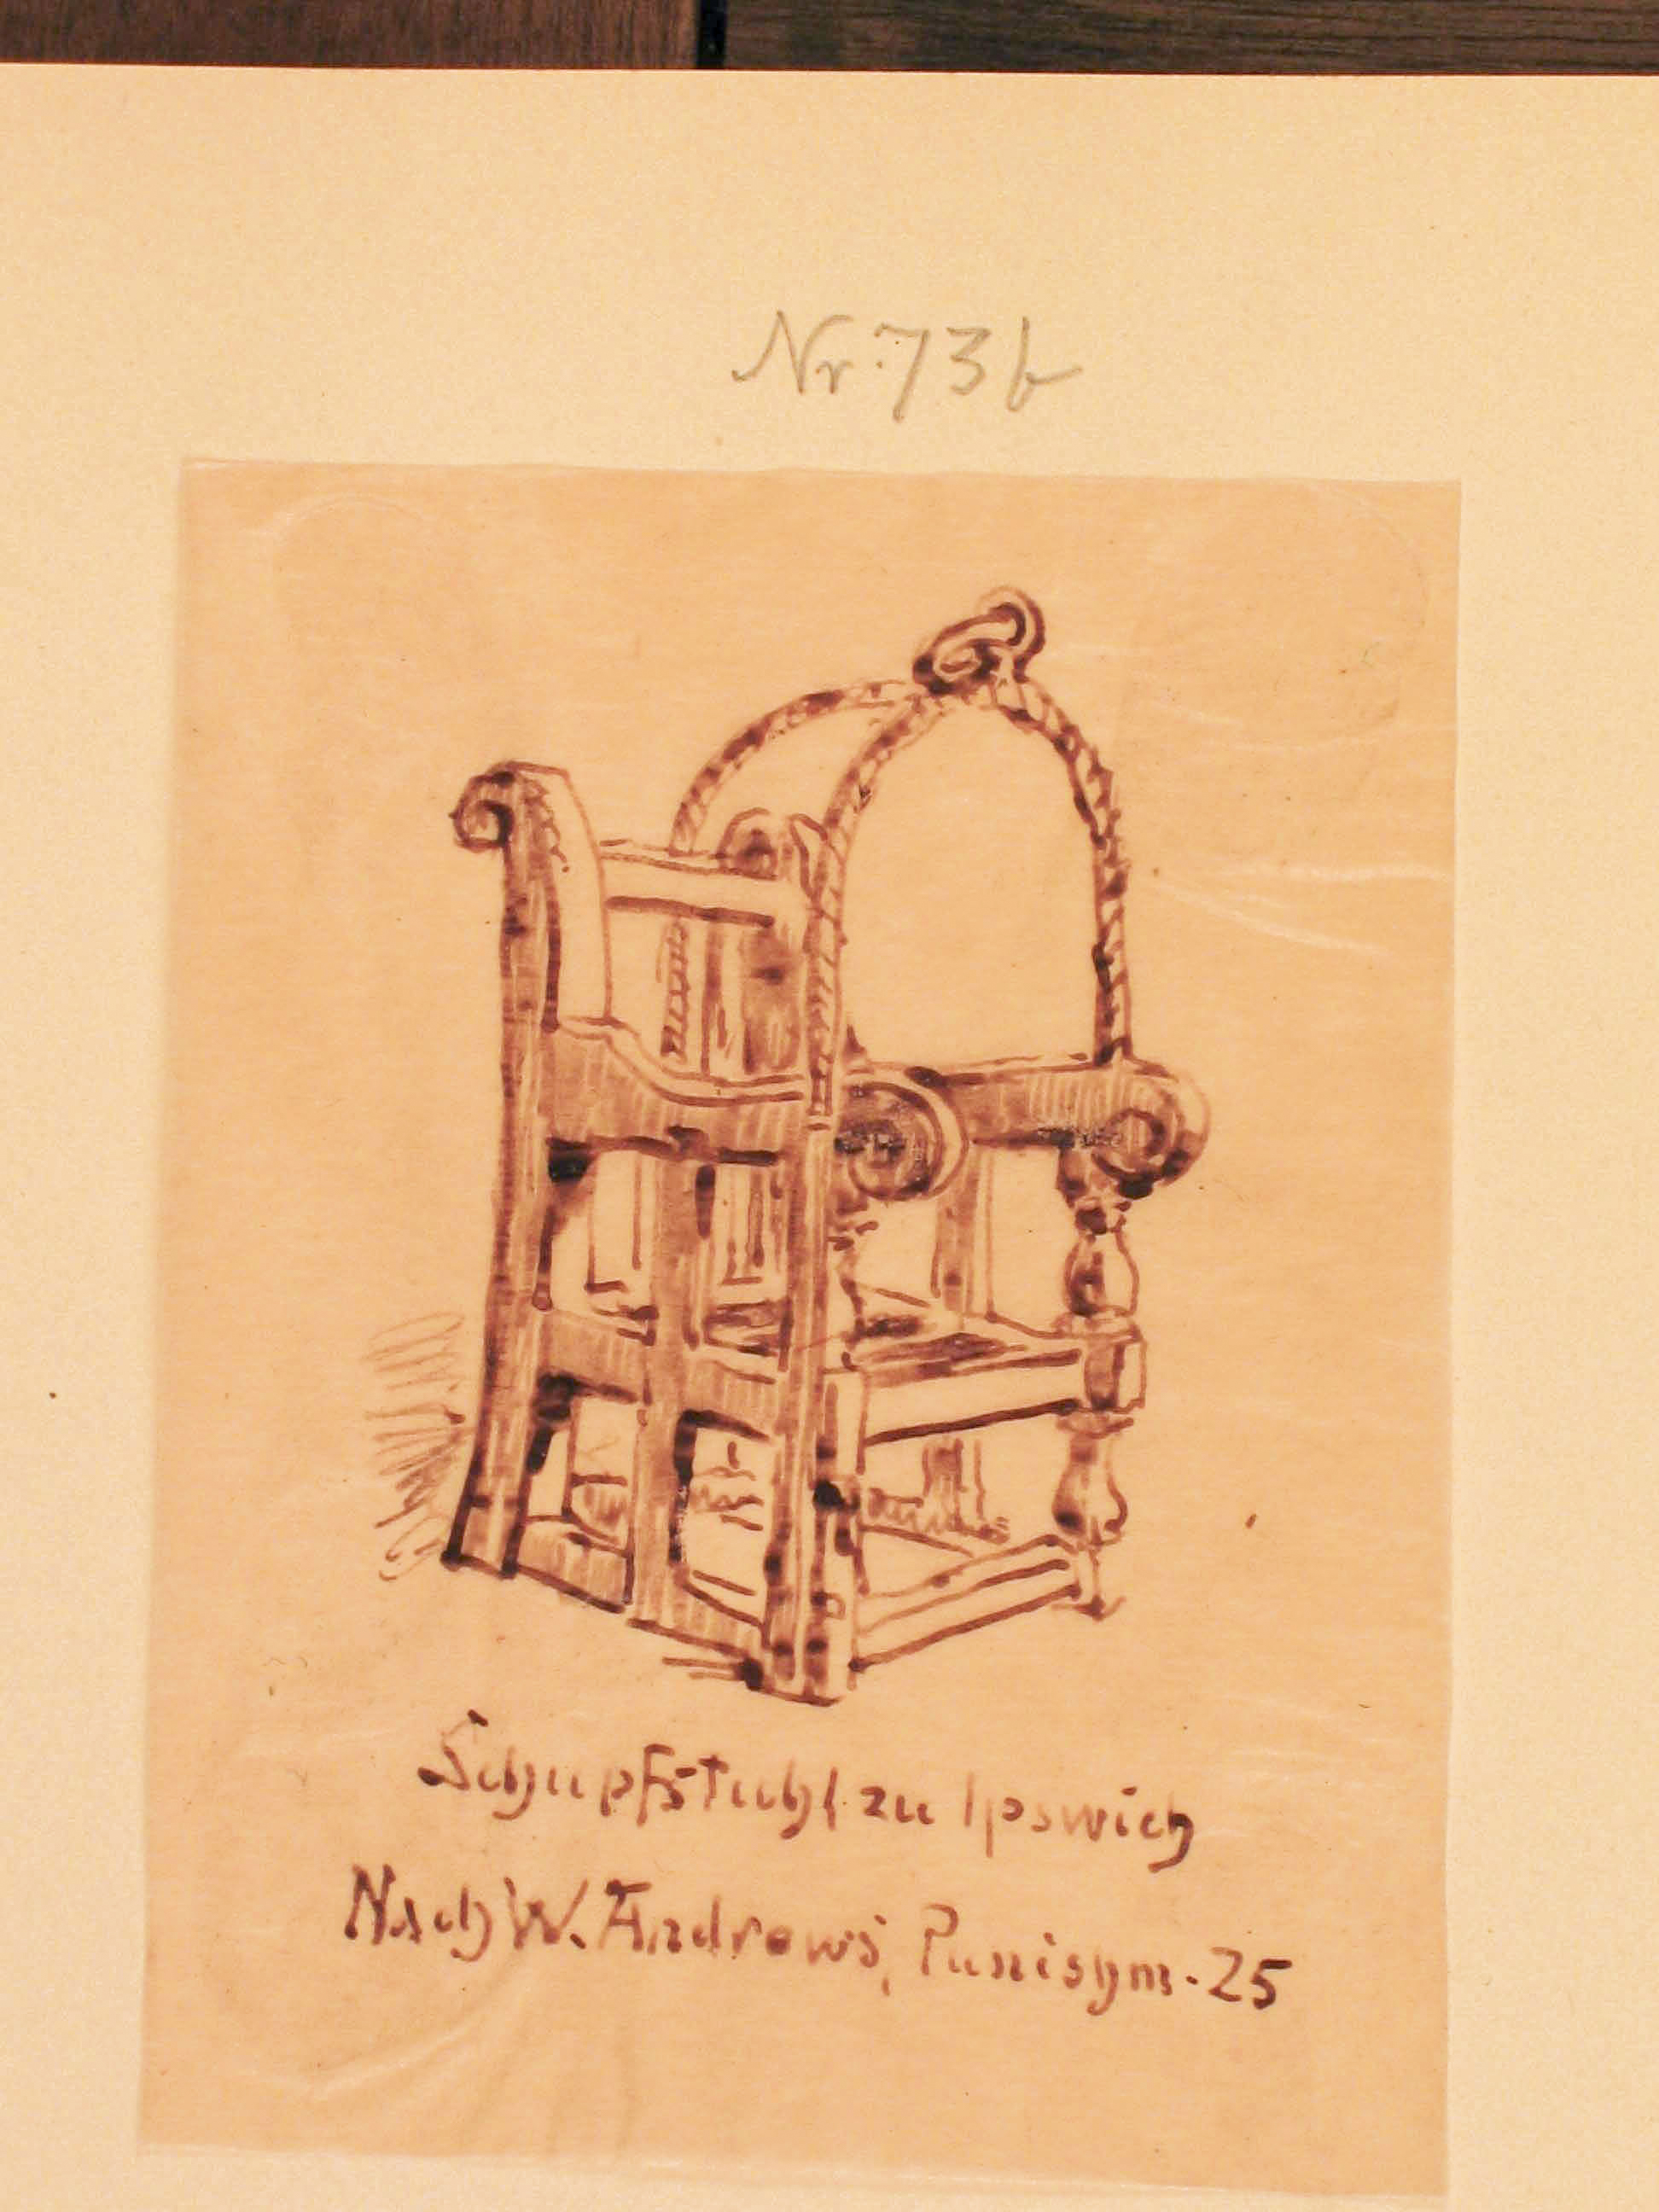 Nr. 73b
Schupfstuhl zu Ipswich
Nach W. Andrews, Punishm. 25